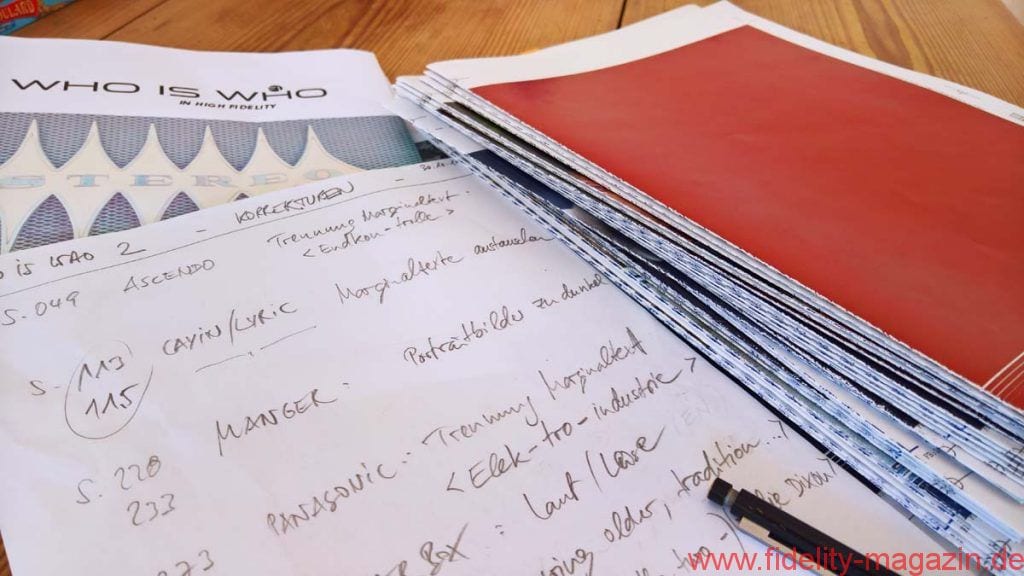 WHO IS WHO
IN HIGH FIDELITY
STEREO
IS WHO 2 - KORREKTUREN -
S. 049 ASCENDO Trennung Marginaltext
<Endkon-trolle>
S. 113 CAYIN/LYRIC Marginaltexte austauschen
115
S. 220 MANGER: Porträtbilder zu dunkel
233 PANASONIC: Trennung Marginaltext
<Elek-tro-industrie>
273 BOX: Laut/Leise (EN)
older, tradition...>
www.fidelity-magazin.de